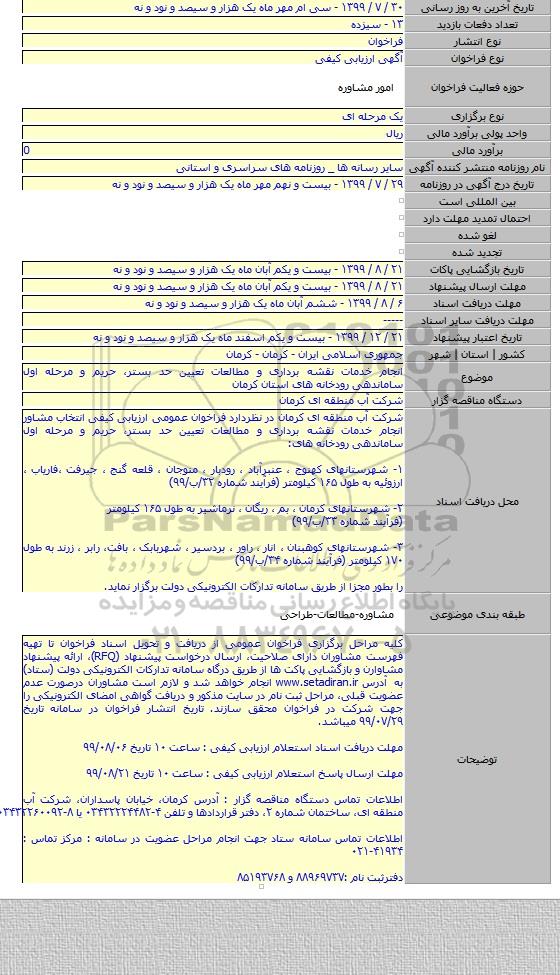 تاریخ آخرین به روز رسانی ۳۰ / ۷ / ۱۳۹۹ - سی ام مهر ماه یک هزار و سیصد و نود و نه
تعداد دفعات بازدید ۱۳ - سیزده
نوع انتشار فراخوان
نوع فراخوان آگهی ارزیابی کیفی
حوزه فعالیت فراخوان امور مشاوره
نوع برگزاری یک مرحله ای
واحد پولی برآورد مالی ریال
برآورد مالی 0
نام روزنامه منتشر کننده آگهی سایر رسانه ها _ روزنامه های سراسری و استانی
تاریخ درج آگهی در روزنامه ۲۹ / ۷ / ۱۳۹۹ - بیست و نهم مهر ماه یک هزار و سیصد و نود و نه
بین المللی است
احتمال تمدید مهلت دارد
لغو شده
تجدید شده
تاریخ بازگشایی پاکات ۲۱ / ۸ / ۱۳۹۹ - بیست و یکم آبان ماه یک هزار و سیصد و نود و نه
مهلت ارسال پیشنهاد ۲۱ / ۸ / ۱۳۹۹ - بیست و یکم آبان ماه یک هزار و سیصد و نود و نه
مهلت دریافت اسناد ۶ / ۸ / ۱۳۹۹ - ششم آبان ماه یک هزار و سیصد و نود و نه
مهلت دریافت سایر اسناد -----
تاریخ اعتبار پیشنهاد ۲۱ / ۱۲ / ۱۳۹۹ - بیست و یکم اسفند ماه یک هزار و سیصد و نود و نه
کشور | استان | شهر جمهوری اسلامی ایران - کرمان - کرمان
موضوع انجام خدمات نقشه برداری و مطالعات تعیین حد بستر، حریم و مرحله اول
ساماندهی رودخانه های استان کرمان
دستگاه مناقصه گزار شرکت آب منطقه ای کرمان
محل دریافت اسناد شرکت آب منطقه ای کرمان در نظردارد فراخوان عمومی ارزیابی کیفی انتخاب مشاور
انجام خدمات نقشه برداری و مطالعات تعیین حد بستر، حریم و مرحله اول
ساماندهی رودخانه های:
۱- شهرستانهای کهنوج ، عنبرآباد ، رودبار ، منوجان ، قلعه گنج ، جیرفت ،فاریاب ،
ارزوئیه به طول ۱۶۵ کیلومتر (فرآیند شماره ۳۲/ب/۹۹)
۲- شهرستانهای کرمان ، بم ، ریگان ، نرماشیر به طول ۱۶۵ کیلومتر
(فرآیند شماره ۳۳/ب/۹۹)
۳- شهرستانهای کوهبنان ، انار ، راور ، بردسیر ، شهربابک ، بافت، رابر ، زرند به طول
۱۷۰ کیلومتر (فرآیند شماره ۳۴/ب/۹۹)
را بطور مجزا از طریق سامانه تدارکات الکترونیکی دولت برگزار نماید.
طبقه بندی موضوعی مشاوره-مطالعات-طراحی
توضیحات کلیه مراحل برگزاری فراخوان عمومی از دریافت و تحویل اسناد فراخوان تا تهیه
فهرست مشاوران دارای صلاحیت، ارسال درخواست پیشنهاد (RFQ)، ارائه پیشنهاد
مشاوران و بازگشایی پاکت ها از طریق درگاه سامانه تدارکات الکترونیکی دولت (ستاد)
به آدرس www.setadiran.ir انجام خواهد شد و لازم است مشاوران درصورت عدم
عضویت قبلی، مراحل ثبت نام در سایت مذکور و دریافت گواهی امضای الکترونیکی را
جهت شرکت در فراخوان محقق سازند. تاریخ انتشار فراخوان در سامانه تاریخ
۹۹/۰۷/۲۹ میباشد.
مهلت دریافت اسناد استعلام ارزیابی کیفی : ساعت ۱۰ تاریخ ۹۹/۰۸/۰۶
مهلت ارسال پاسخ استعلام ارزیابی کیفی : ساعت ۱۰ تاریخ ۹۹/۰۸/۲۱
اطلاعات تماس دستگاه مناقصه گزار : آدرس کرمان، خیابان پاسداران، شرکت آب
منطقه ای، ساختمان شماره ۲، دفتر قراردادها و تلفن ۴-۰۳۴۳۲۲۲۴۴۸۲ یا ۸-۰۳۴۳۲۲۶۰۰۹۲
اطلاعات تماس سامانه ستاد جهت انجام مراحل عضویت در سامانه : مرکز تماس :
۰۲۱-۴۱۹۳۴
دفترثبت نام :۸۸۹۶۹۷۳۷ و ۸۵۱۹۳۷۶۸
ParsNamadData
پایگاه اطلاع رسانی مناقصه و مزایده